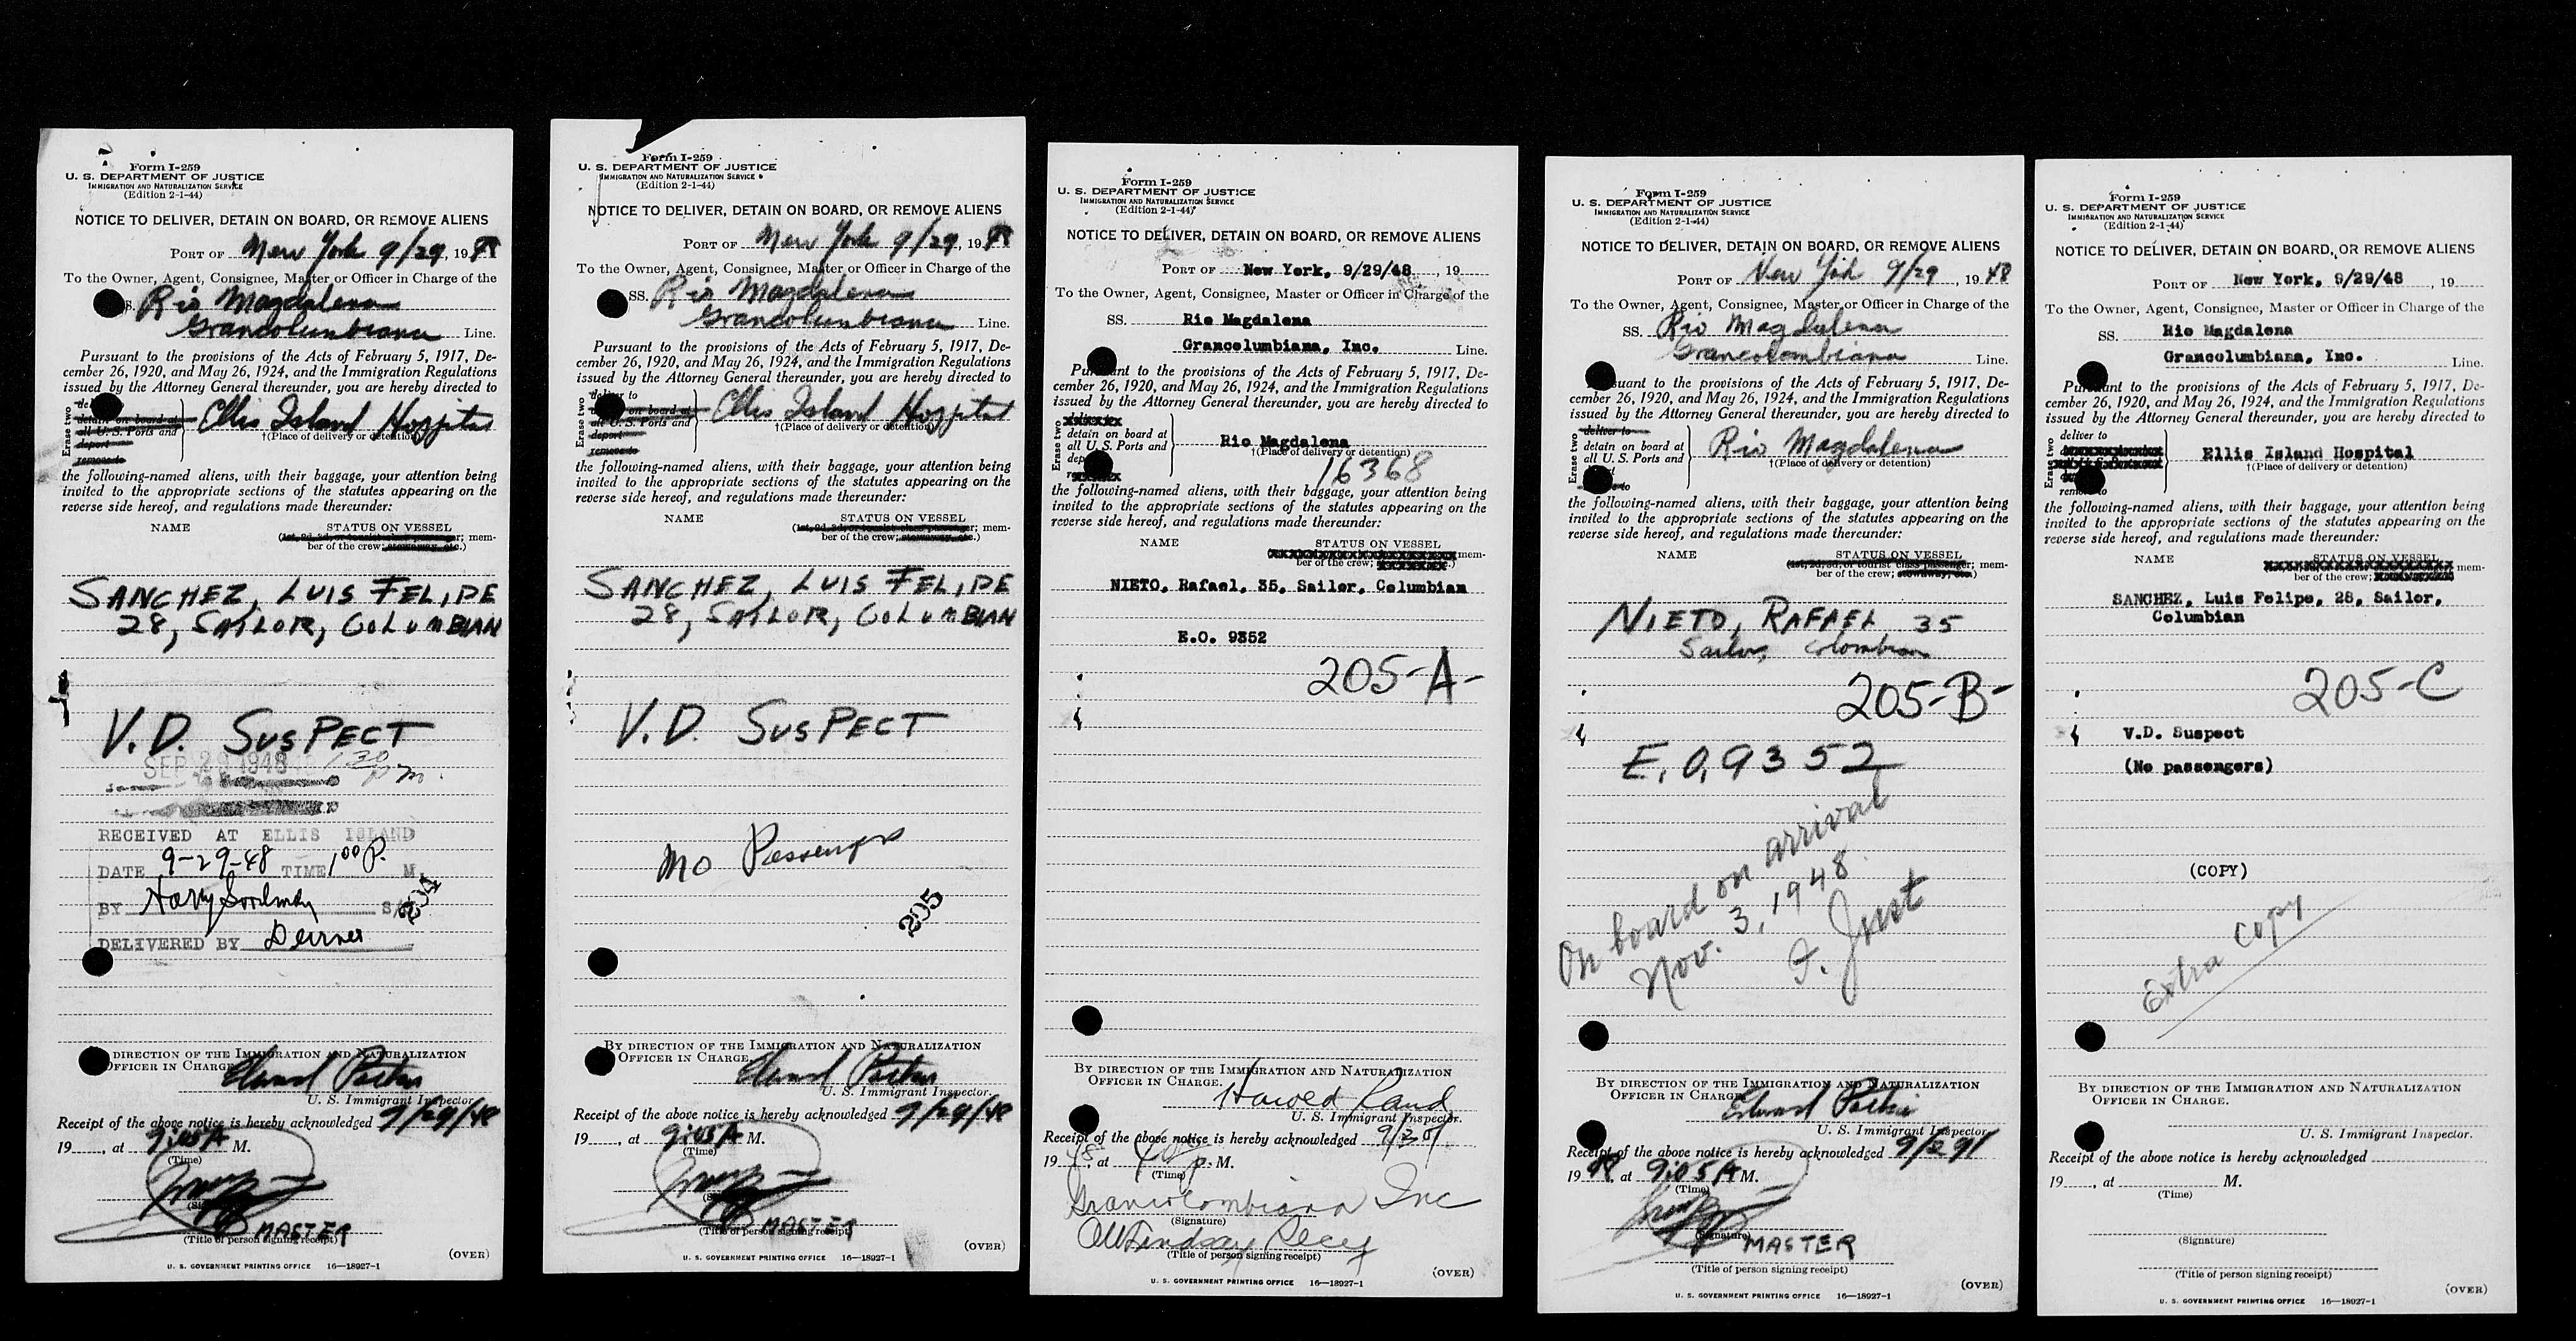 Form I-259
U. S. DEPARTMENT OF JUSTICE
IMMIGRATION AND NATURALIZATION SERVICE
(Edition 2-1-44)
NOTICE TO DELIVER, DETAIN ON BOARD, OR REMOVE ALIENS
PORT OF New York 9/29, 1948
To the Owner, Agent, Consignee, Master or Officer in Charge of the
SS. Rio Magdalena
Grancolumbiana Line.
Pursuant to the provisions of the Acts of February 5, 1917, De-
cember 26, 1920, and May 26, 1924, and the Immigration Regulations
issued by the Attorney General thereunder, you are hereby directed to
Erase two
detain on board at
all U. S. Ports and
deport
remove to
Ellis Island Hospital
†(Place of delivery or detention)
the following-named aliens, with their baggage, your attention being
invited to the appropriate sections of the statutes appearing on the
reverse side hereof, and regulations made thereunder:
NAME STATUS ON VESSEL
(1st, 2d, 3d, or tourist class passenger; mem-
ber of the crew; stowaway, etc.)
SANCHEZ, LUIS FELIPE
28, SAILOR, COLUMBIAN
V.D. SUSPECT
SEP 29 1948 1 30
P m.
RECEIVED AT ELLIS ISLAND
DATE 9-29-48 TIME 1 00 P. M
BY Harry
204
DELIVERED BY
DIRECTION OF THE IMMIGRATION AND NATURALIZATION
OFFICER IN CHARGE
Edward
U. S. Immigrant Inspector.
Receipt of the above notice is hereby acknowledged 9/29/48
19...., at 9:05 A M.
(Time)
MASTER
(Title of person signing receipt)
(OVER)
U. S. GOVERNMENT PRINTING OFFICE 16—18927-1
Form I-259
U. S. DEPARTMENT OF JUSTICE
IMMIGRATION AND NATURALIZATION SERVICE
(Edition 2-1-44)
NOTICE TO DELIVER, DETAIN ON BOARD, OR REMOVE ALIENS
PORT OF New York 9/29, 1948
To the Owner, Agent, Consignee, Master or Officer in Charge of the
SS. Rio Magdalena
Grancolumbiana Line.
Pursuant to the provisions of the Acts of February 5, 1917, De-
cember 26, 1920, and May 26, 1924, and the Immigration Regulations
issued by the Attorney General thereunder, you are hereby directed to
Erase two
deliver to
detain on board at
all U. S. Ports and
deport
remove to
Ellis Island Hospital
†(Place of delivery or detention)
the following-named aliens, with their baggage, your attention being
invited to the appropriate sections of the statutes appearing on the
reverse side hereof, and regulations made thereunder:
NAME STATUS ON VESSEL
(1st, 2d, 3d, or tourist class passenger; mem-
ber of the crew; stowaway, etc.)
SANCHEZ, LUIS FELIPE
28, SAILOR, COLUMBIAN
V.D. SUSPECT
No Passengers
205
BY DIRECTION OF THE IMMIGRATION AND NATURALIZATION
OFFICER IN CHARGE.
Edward
U. S. Immigrant Inspector.
Receipt of the above notice is hereby acknowledged 9/29/48
19...., at 9:05 A M.
(Time)
MASTER
(Title of person signing receipt)
(OVER)
U. S. GOVERNMENT PRINTING OFFICE 16—18927-1
Form I-259
U. S. DEPARTMENT OF JUSTICE
IMMIGRATION AND NATURALIZATION SERVICE
(Edition 2-1-44)
NOTICE TO DELIVER, DETAIN ON BOARD, OR REMOVE ALIENS
PORT OF New York, 9/29/48, 19
To the Owner, Agent, Consignee, Master or Officer in Charge of the
SS. Rio Magdalena
Grancolumbiana, Inc. Line.
Pursuant to the provisions of the Acts of February 5, 1917, De-
cember 26, 1920, and May 26, 1924, and the Immigration Regulations
issued by the Attorney General thereunder, you are hereby directed to
Erase two
detain on board at
all U. S. Ports and
Rio Magdalena
†(Place of delivery or detention)
16368
the following-named aliens, with their baggage, your attention being
invited to the appropriate sections of the statutes appearing on the
reverse side hereof, and regulations made thereunder:
NAME STATUS ON VESSEL
mem-
ber of the crew; .)
NIETO, Rafael, 35, Sailor, Columbian
E.O. 9352
205-A-
BY DIRECTION OF THE IMMIGRATION AND NATURALIZATION
OFFICER IN CHARGE.
Howed Rand
U. S. Immigrant Inspector.
Receipt of the above notice is hereby acknowledged 9/30
1948, at P. M.
(Time)
Grancolombiana Inc
(Signature)
Lindsay
(Title of person signing receipt)
(OVER)
U. S. GOVERNMENT PRINTING OFFICE 16—18927-1
Form I-259
U. S. DEPARTMENT OF JUSTICE
IMMIGRATION AND NATURALIZATION SERVICE
(Edition 2-1-44)
NOTICE TO DELIVER, DETAIN ON BOARD, OR REMOVE ALIENS
PORT OF New York 9/29, 1948
To the Owner, Agent, Consignee, Master or Officer in Charge of the
SS. Rio Magdalena
Grancolombiana Line.
Pursuant to the provisions of the Acts of February 5, 1917, De-
cember 26, 1920, and May 26, 1924, and the Immigration Regulations
issued by the Attorney General thereunder, you are hereby directed to
Erase two
deliver to
detain on board at
all U. S. Ports and
Rio Magdalena
†(Place of delivery or detention)
the following-named aliens, with their baggage, your attention being
invited to the appropriate sections of the statutes appearing on the
reverse side hereof, and regulations made thereunder:
NAME STATUS ON VESSEL
(1st, 2d, 3d, or tourist class passenger; mem-
ber of the crew; stowaway, etc.)
NIETO, RAFAEL 35
Sailor, Colombian
205-B-
E.O. 9352
On board on arrival
Nov. 3, 1948.
F. Just
BY DIRECTION OF THE IMMIGRATION AND NATURALIZATION
OFFICER IN CHARGE
Edward
U. S. Immigrant Inspector.
Receipt of the above notice is hereby acknowledged 9/29/
1948, at 9:05 A M.
(Time)
(Signature)
MASTER
(Title of person signing receipt)
(OVER)
U. S. GOVERNMENT PRINTING OFFICE 16—18927-1
Form I-259
U. S. DEPARTMENT OF JUSTICE
IMMIGRATION AND NATURALIZATION SERVICE
(Edition 2-1-44)
NOTICE TO DELIVER, DETAIN ON BOARD, OR REMOVE ALIENS
PORT OF New York, 9/29/48, 19
To the Owner, Agent, Consignee, Master or Officer in Charge of the
SS. Rio Magdalena
Grancolumbiana, Inc. Line.
Pursuant to the provisions of the Acts of February 5, 1917, De-
cember 26, 1920, and May 26, 1924, and the Immigration Regulations
issued by the Attorney General thereunder, you are hereby directed to
Erase two
deliver to
remove to
Ellis Island Hospital
†(Place of delivery or detention)
the following-named aliens, with their baggage, your attention being
invited to the appropriate sections of the statutes appearing on the
reverse side hereof, and regulations made thereunder:
NAME STATUS ON VESSEL
mem-
ber of the crew;
SANCHEZ, Luis Felipe, 28, Sailor,
Columbian
205-C
V.D. Suspect
(No passengers)
(COPY)
Extra copy
BY DIRECTION OF THE IMMIGRATION AND NATURALIZATION
OFFICER IN CHARGE.
U. S. Immigrant Inspector.
Receipt of the above notice is hereby acknowledged
19...., at M.
(Time)
(Signature)
(Title of person signing receipt)
(OVER)
U. S. GOVERNMENT PRINTING OFFICE 16—18927-1